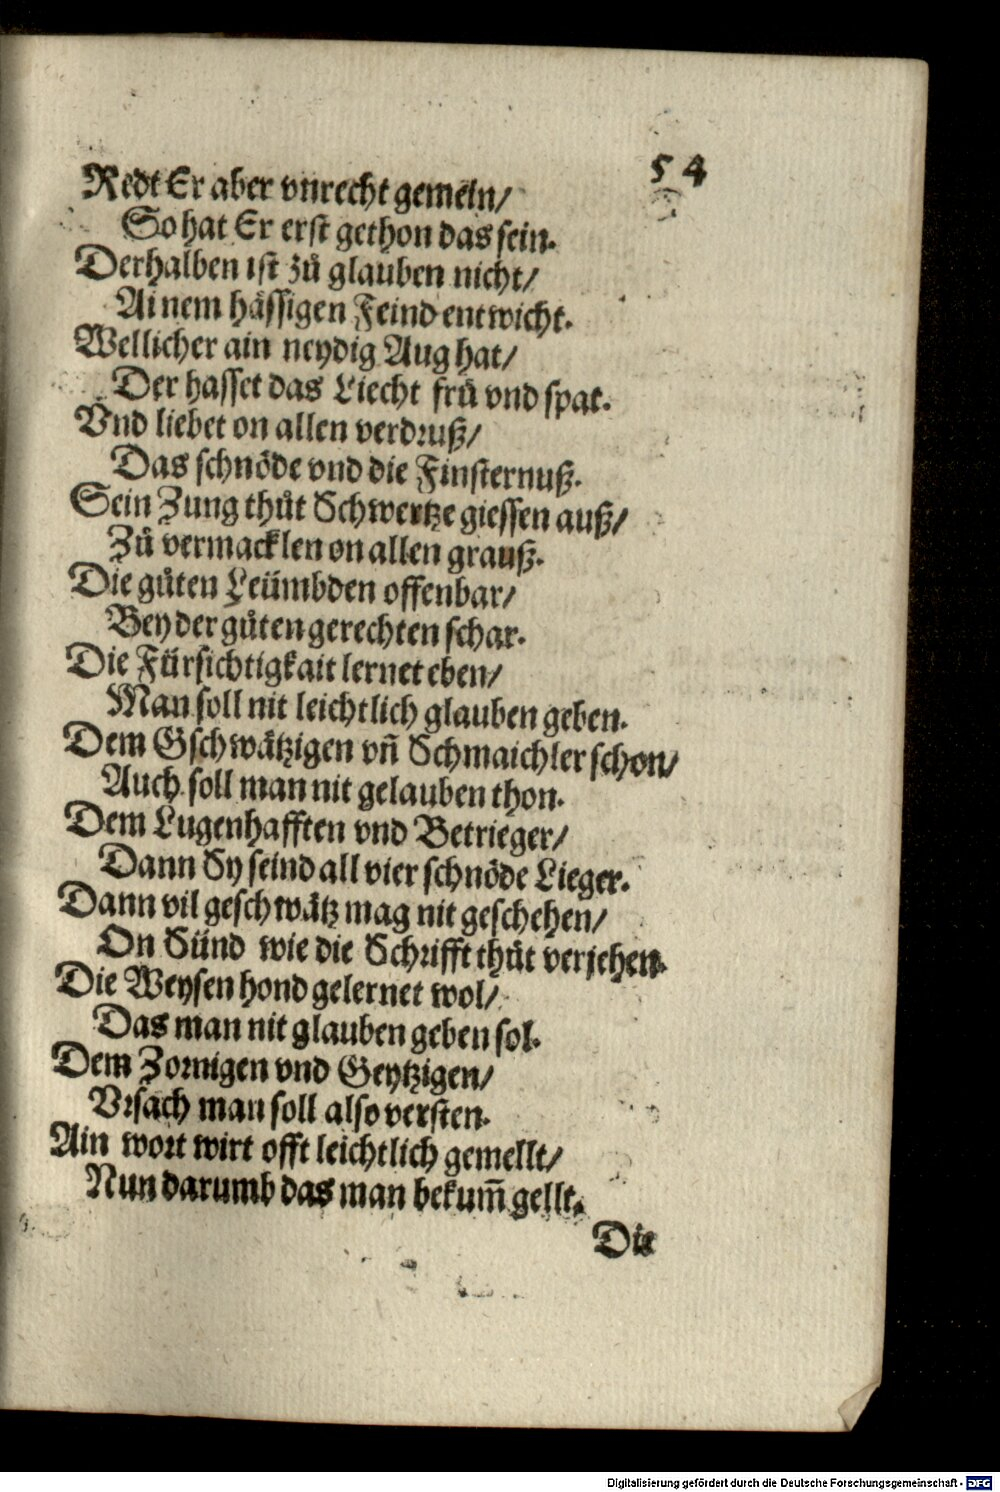 54
Redt Er aber vnrecht gemeln/
So hat Er erst gethon das sein.
Derhalben ist zů glauben nicht/
Ainem hässigen Feind entwicht.
Wellicher ain neydig Aug hat/
Der hasset das Liecht frů vnd spat.
Vnd liebet on allen verdruß/
Das schnöde vnd die Finsternuß.
Sein Zung thůt Schwertze giessen auß/
Zů vermacklen on allen grauß.
Die gůten Leümbden offenbar/
Bey der gůten gerechten schar.
Die Fürsichtigkait lernet eben/
Man soll nit leichtlich glauben geben.
Dem Gschwätzigen vñ Schmaichler schon/
Auch soll man nit gelauben thon.
Dem Lugenhafften vnd Betrieger/
Dann Sy seind all vier schnöde Lieger.
Dann vil geschwätz mag nit geschehen/
On Sünd wie die Schrifft thůt verjehen.
Die Weysen hond gelernet wol/
Das man nit glauben geben sol.
Dem Zornigen vnd Geytzigen/
Vrsach man soll also versten.
Ain wort wirt offt leichtlich gemellt/
Nun darumb das man bekum̃ gellt.
Die
Digitalisierung gefördert durch die Deutsche Forschungsgemeinschaft - DFG